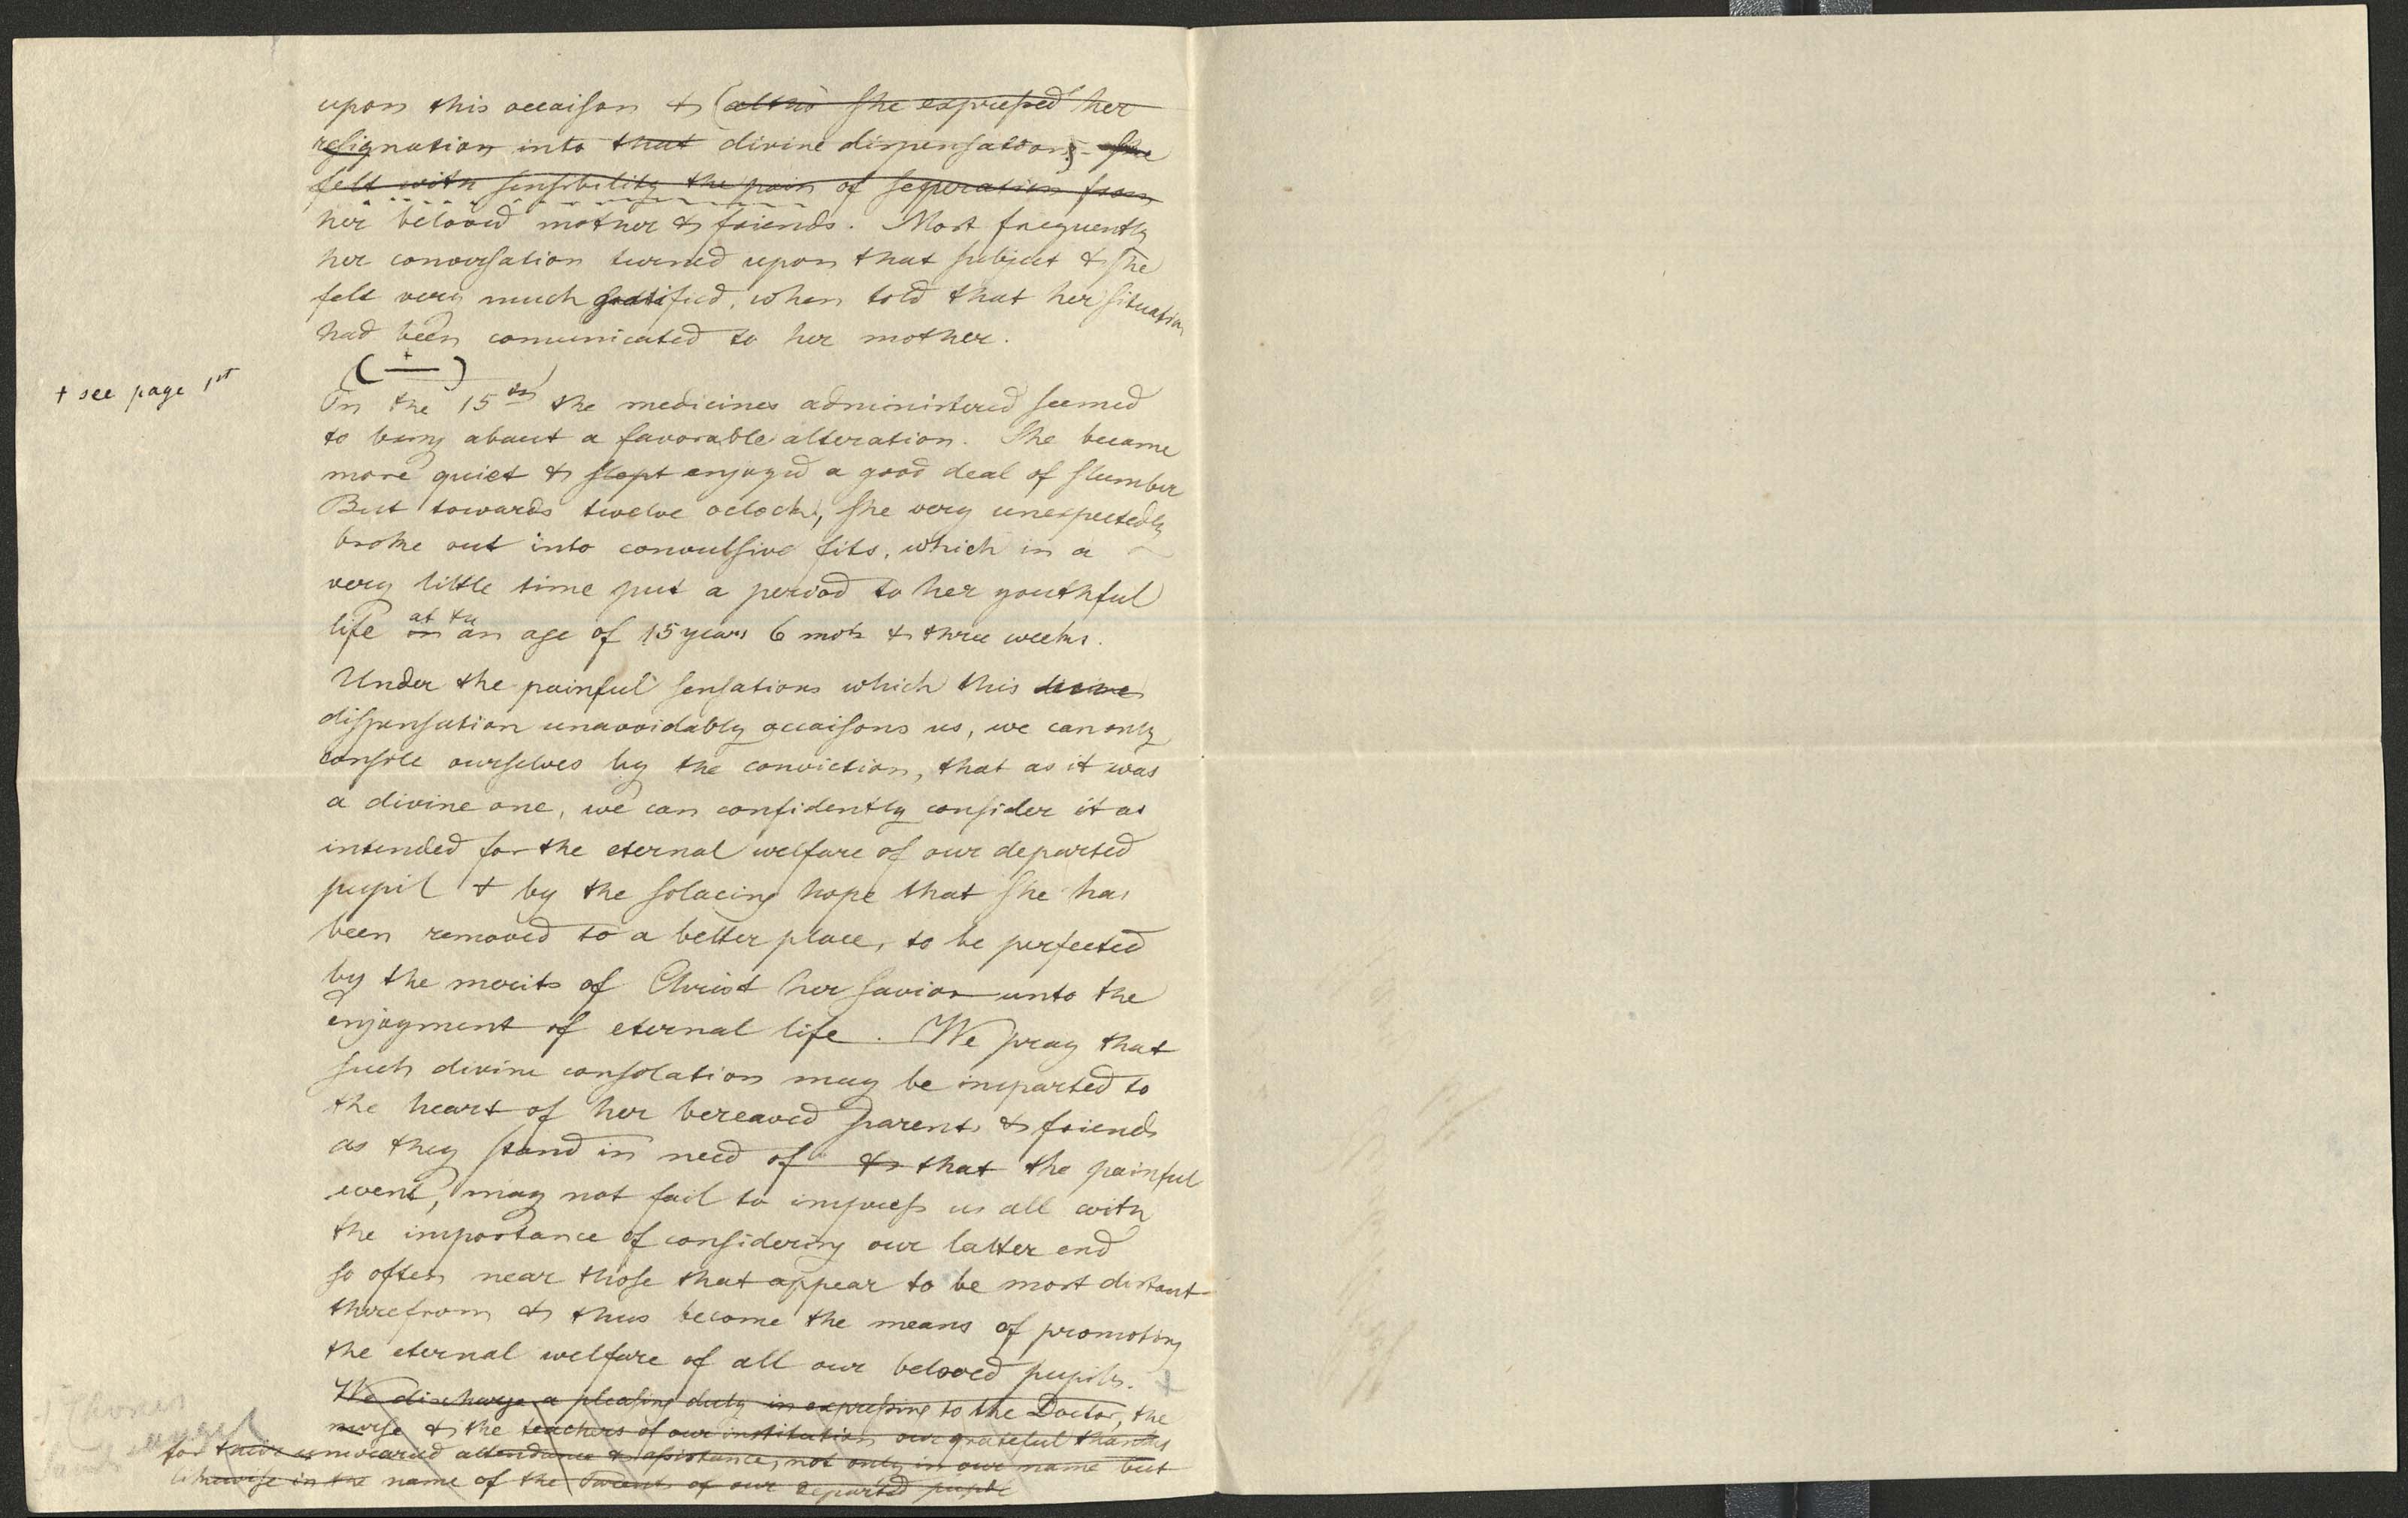 upon this occaison & (altho' she expressed her
resignation into that divine dispensation) - she
felt with sensibility the pain of seperation from
her beloved mother & friends. Most frequently
her conversation turned upon that subject & she
felt very much gratified, when told that her situation
had been comunicated to her mother.
( + )
+ see page 1st
On the 15th the medicines administered seemed
to bring about a favorable alteration. She became
more quiet & slept enjoyed a good deal of slumber
But towards twelve oclock, she very unexpectedly
broke out into convulsive fits, which in a
very little time put a period to her youthful
life on an at the age of 15 years 6 mots & three weeks.
Under the painful sensations which this
dispensation unavoidably occaisons us, we can only
console ourselves by the conviction, that as it was
a divine one, we can confidently consider it as
intended for the eternal welfare of our departed
pupil & by the solacing hope that she has
been removed to a better place, to be perfected
by the merits of Christ her savior unto the
enjoyment of eternal life. We pray that
such divine consolation may be imparted to
the heart of her bereaved parents & friends
as they stand in need of & that the painful
event, may not fail to impress us all with
the importance of considering our latter end
so often near those that appear to be most distant
therefrom & thus become the means of promoting
the eternal welfare of all our beloved pupils. +
We discharge a pleasing duty in expressing to the Doctor, the
nurse & the teachers of our institution our grateful thanks
for their unwearied attendance & assistance, not only in our name but
likewise in the name of the Parents of our departed pupil